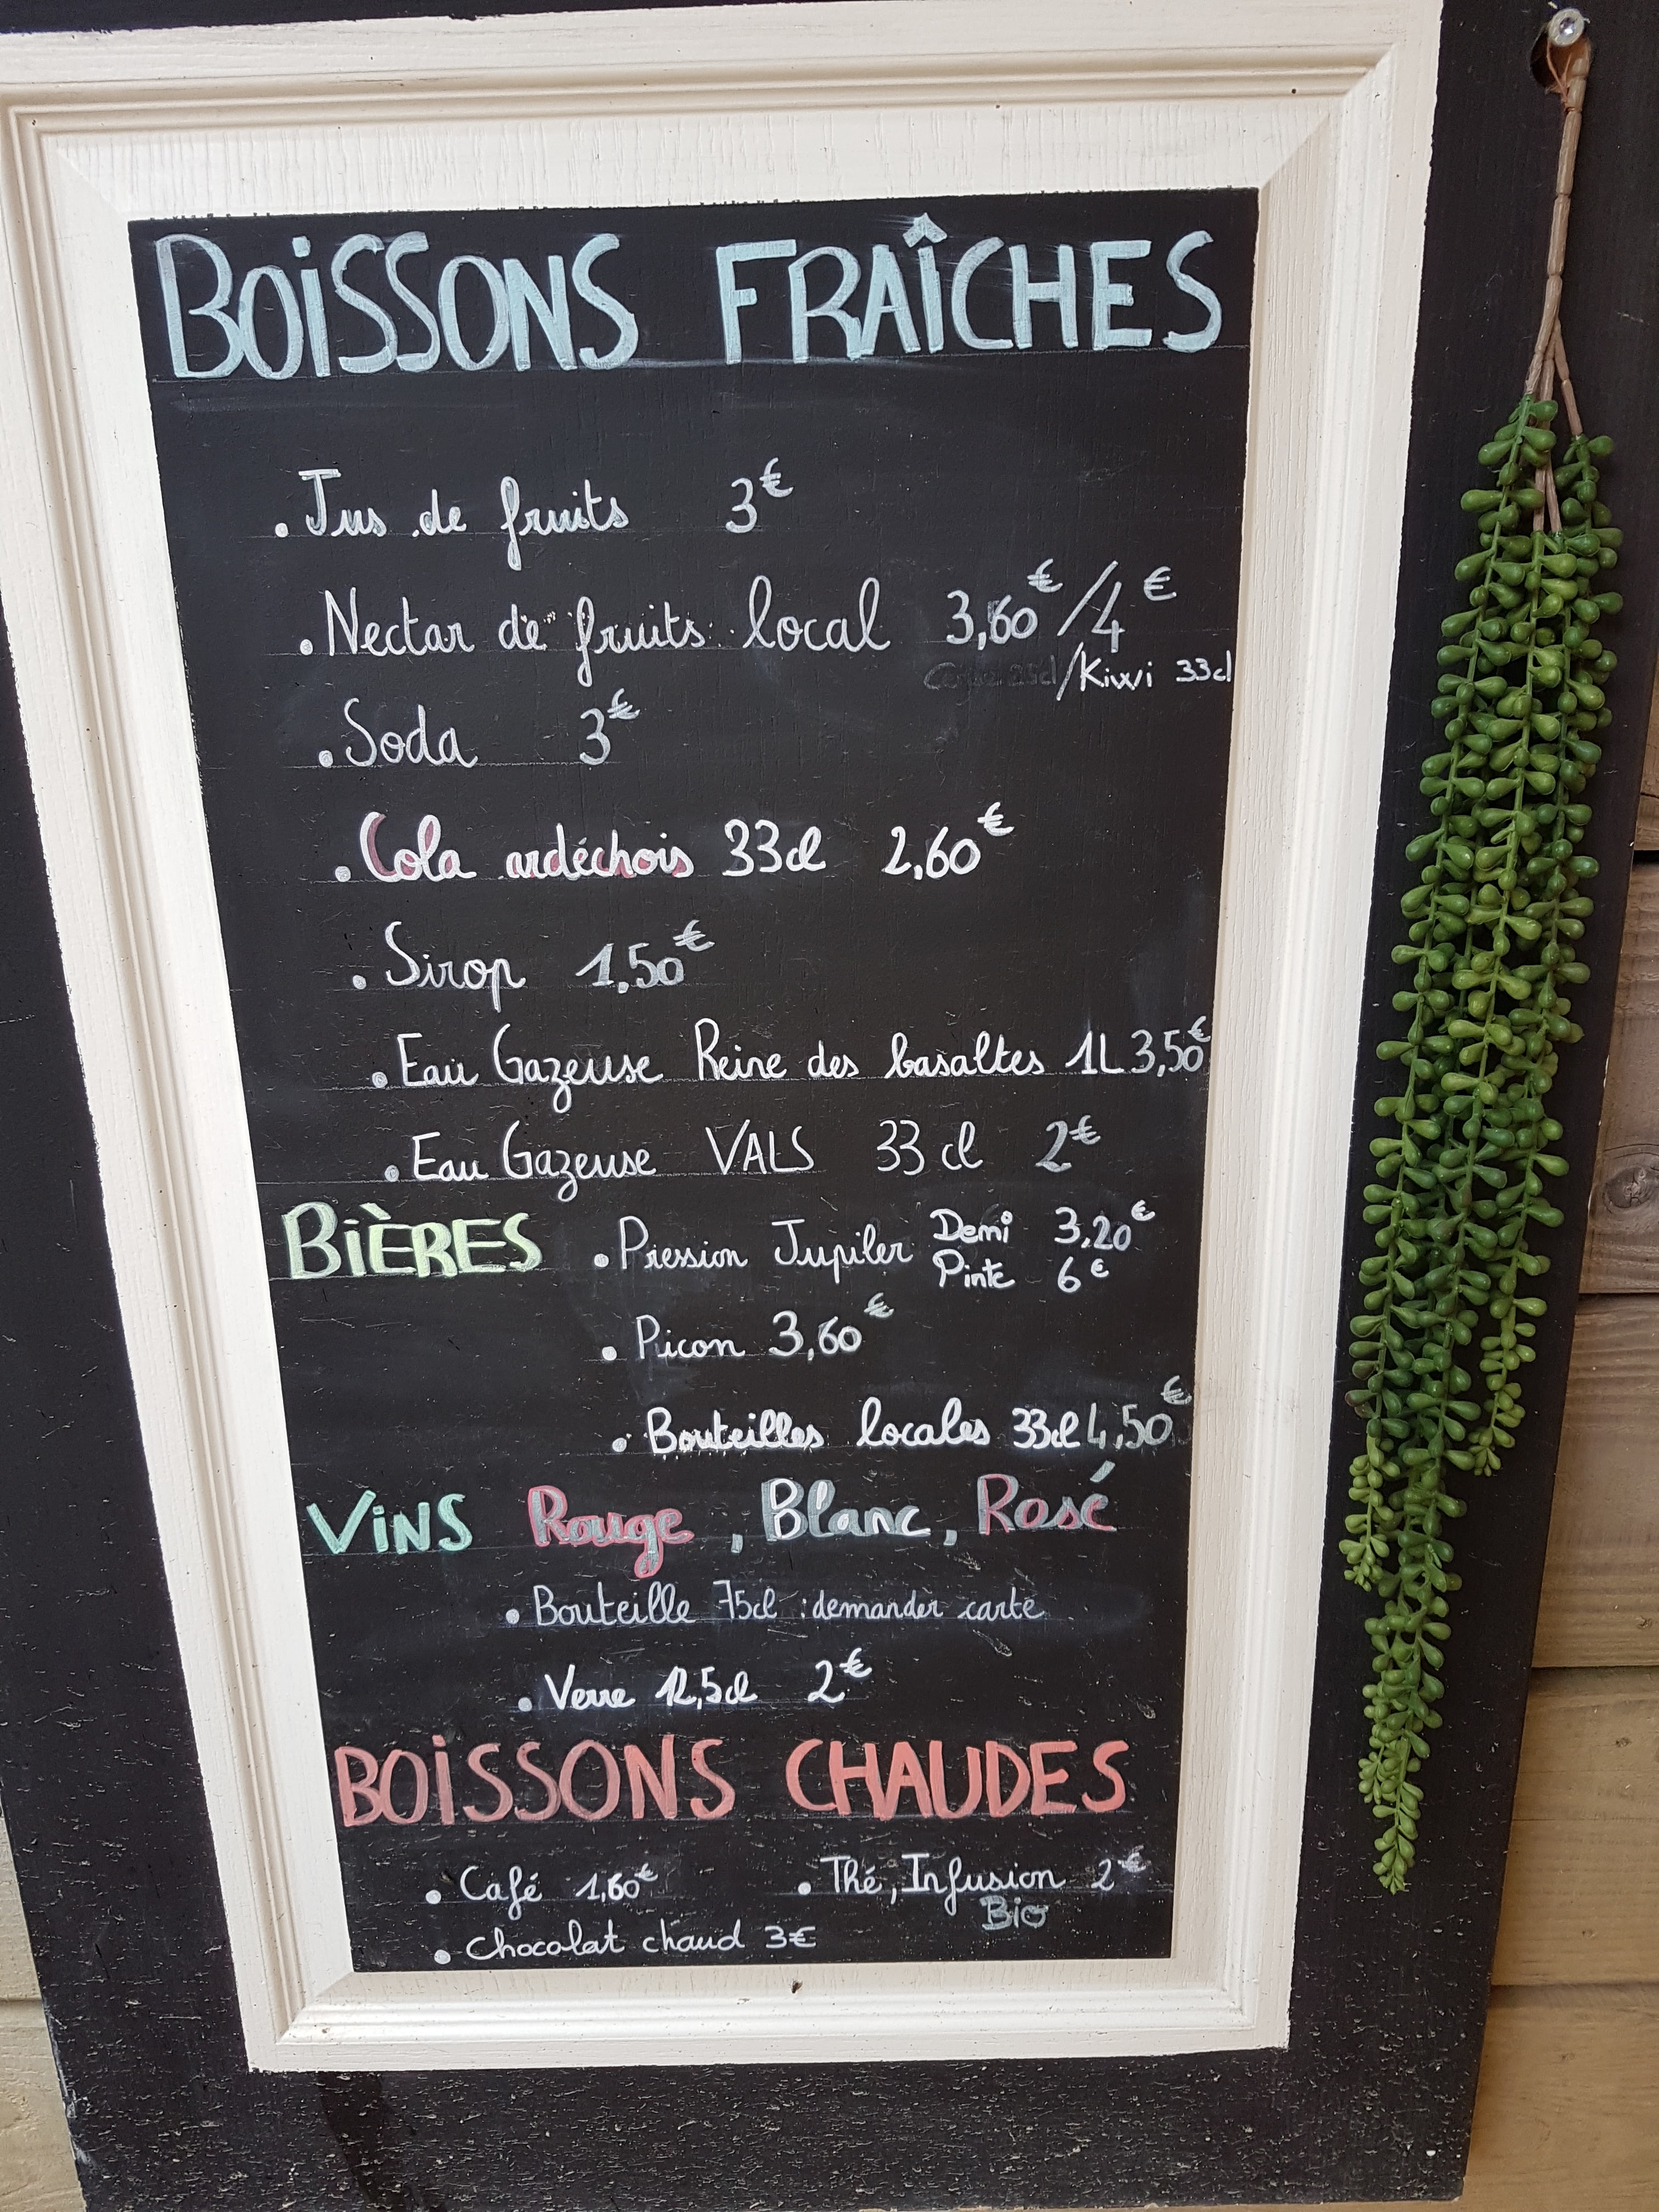 BOISSONS FRAÎCHES
. Jus de fruits 3€
. Nectar de fruits local 3,60€/4€
25cl/Kiwi 33cl
. Soda 3€
. Cola ardéchois 33cl 2,60€
. Sirop 1,50€
. Eau Gazeuse Reine des basaltes 1L 3,50€
. Eau Gazeuse VALS 33cl 2€
BIÈRES . Pression Jupiler Demi 3,20€
Pinte 6€
. Picon 3,60€
. Bouteilles locales 33cl 4,50€
VINS Rouge, Blanc, Rosé
. Bouteille 75cl : demander carte
. Verre 12,5cl 2€
BOISSONS CHAUDES
. Café 1,60€ . Thé, Infusion 2€
Bio
. Chocolat chaud 3€